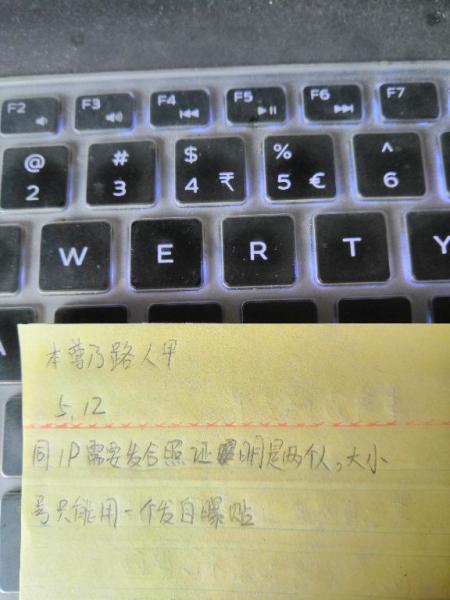 F2 F3 F4 F5 F6 F7
@ # $ % ^
2 3 4 ₹ 5 € 6
W E R T Y
A
本尊乃路人甲
5.12
同IP需要发合照证明是两个人。大小
号只能用一个发自曝贴